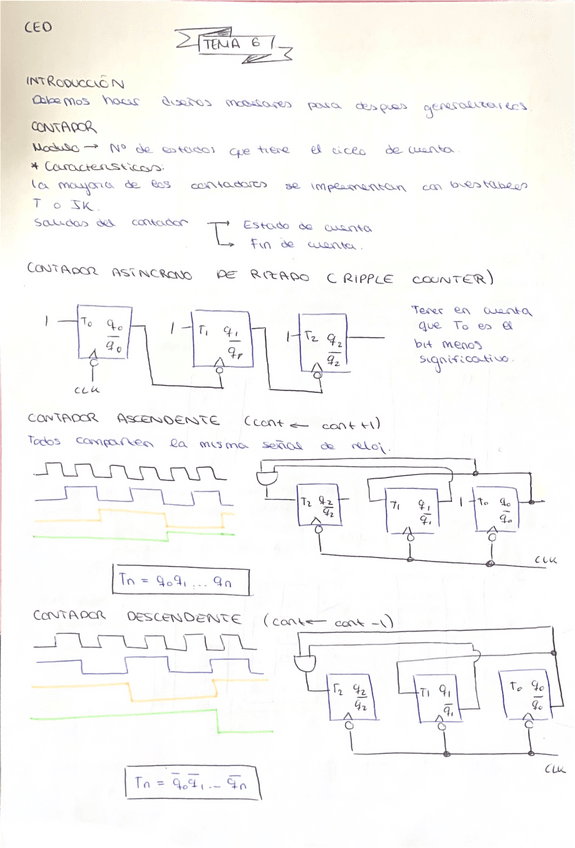 CEO
TEMA 6
INTRODUCCIÓN
Debemos hacer diseños modulares para despues generalizarlos.
CONTADOR
Modulo → Nº de estados que tiene el ciclo de cuenta.
* Características:
La mayoría de los contadores se implementan con biestables
T o JK.
Salidas del contador → Estado de cuenta
→ Fin de cuenta.
CONTADOR ASÍNCRONO DE RIZADO (RIPPLE COUNTER)
1 T0 q0 q̅0 CLK
1 T1 q1 q̅1
1 T2 q2 q̅2
Tener en cuenta
que T0 es el
bit menos
significativo.
CONTADOR ASCENDENTE (cont ← cont +1)
Todos comparten la misma señal de reloj.
T2 q2 q̅2
T1 q1 q̅1
1 T0 q0 q̅0
CLK
Tn = q0q1 ... qn
CONTADOR DESCENDENTE (cont ← cont -1)
T2 q2 q̅2
T1 q1 q̅1
T0 q0 q̅0
CLK
Tn = q̅0q̅1 ... q̅n